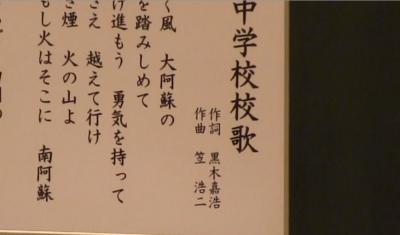 中学校校歌
作詞 黒木嘉浩
作曲 笠 浩二
く風 大阿蘇の
を踏みしめて
け進もう 勇気を持って
さえ 越えて行け
き煙 火の山よ
もし火はそこに 南阿蘇